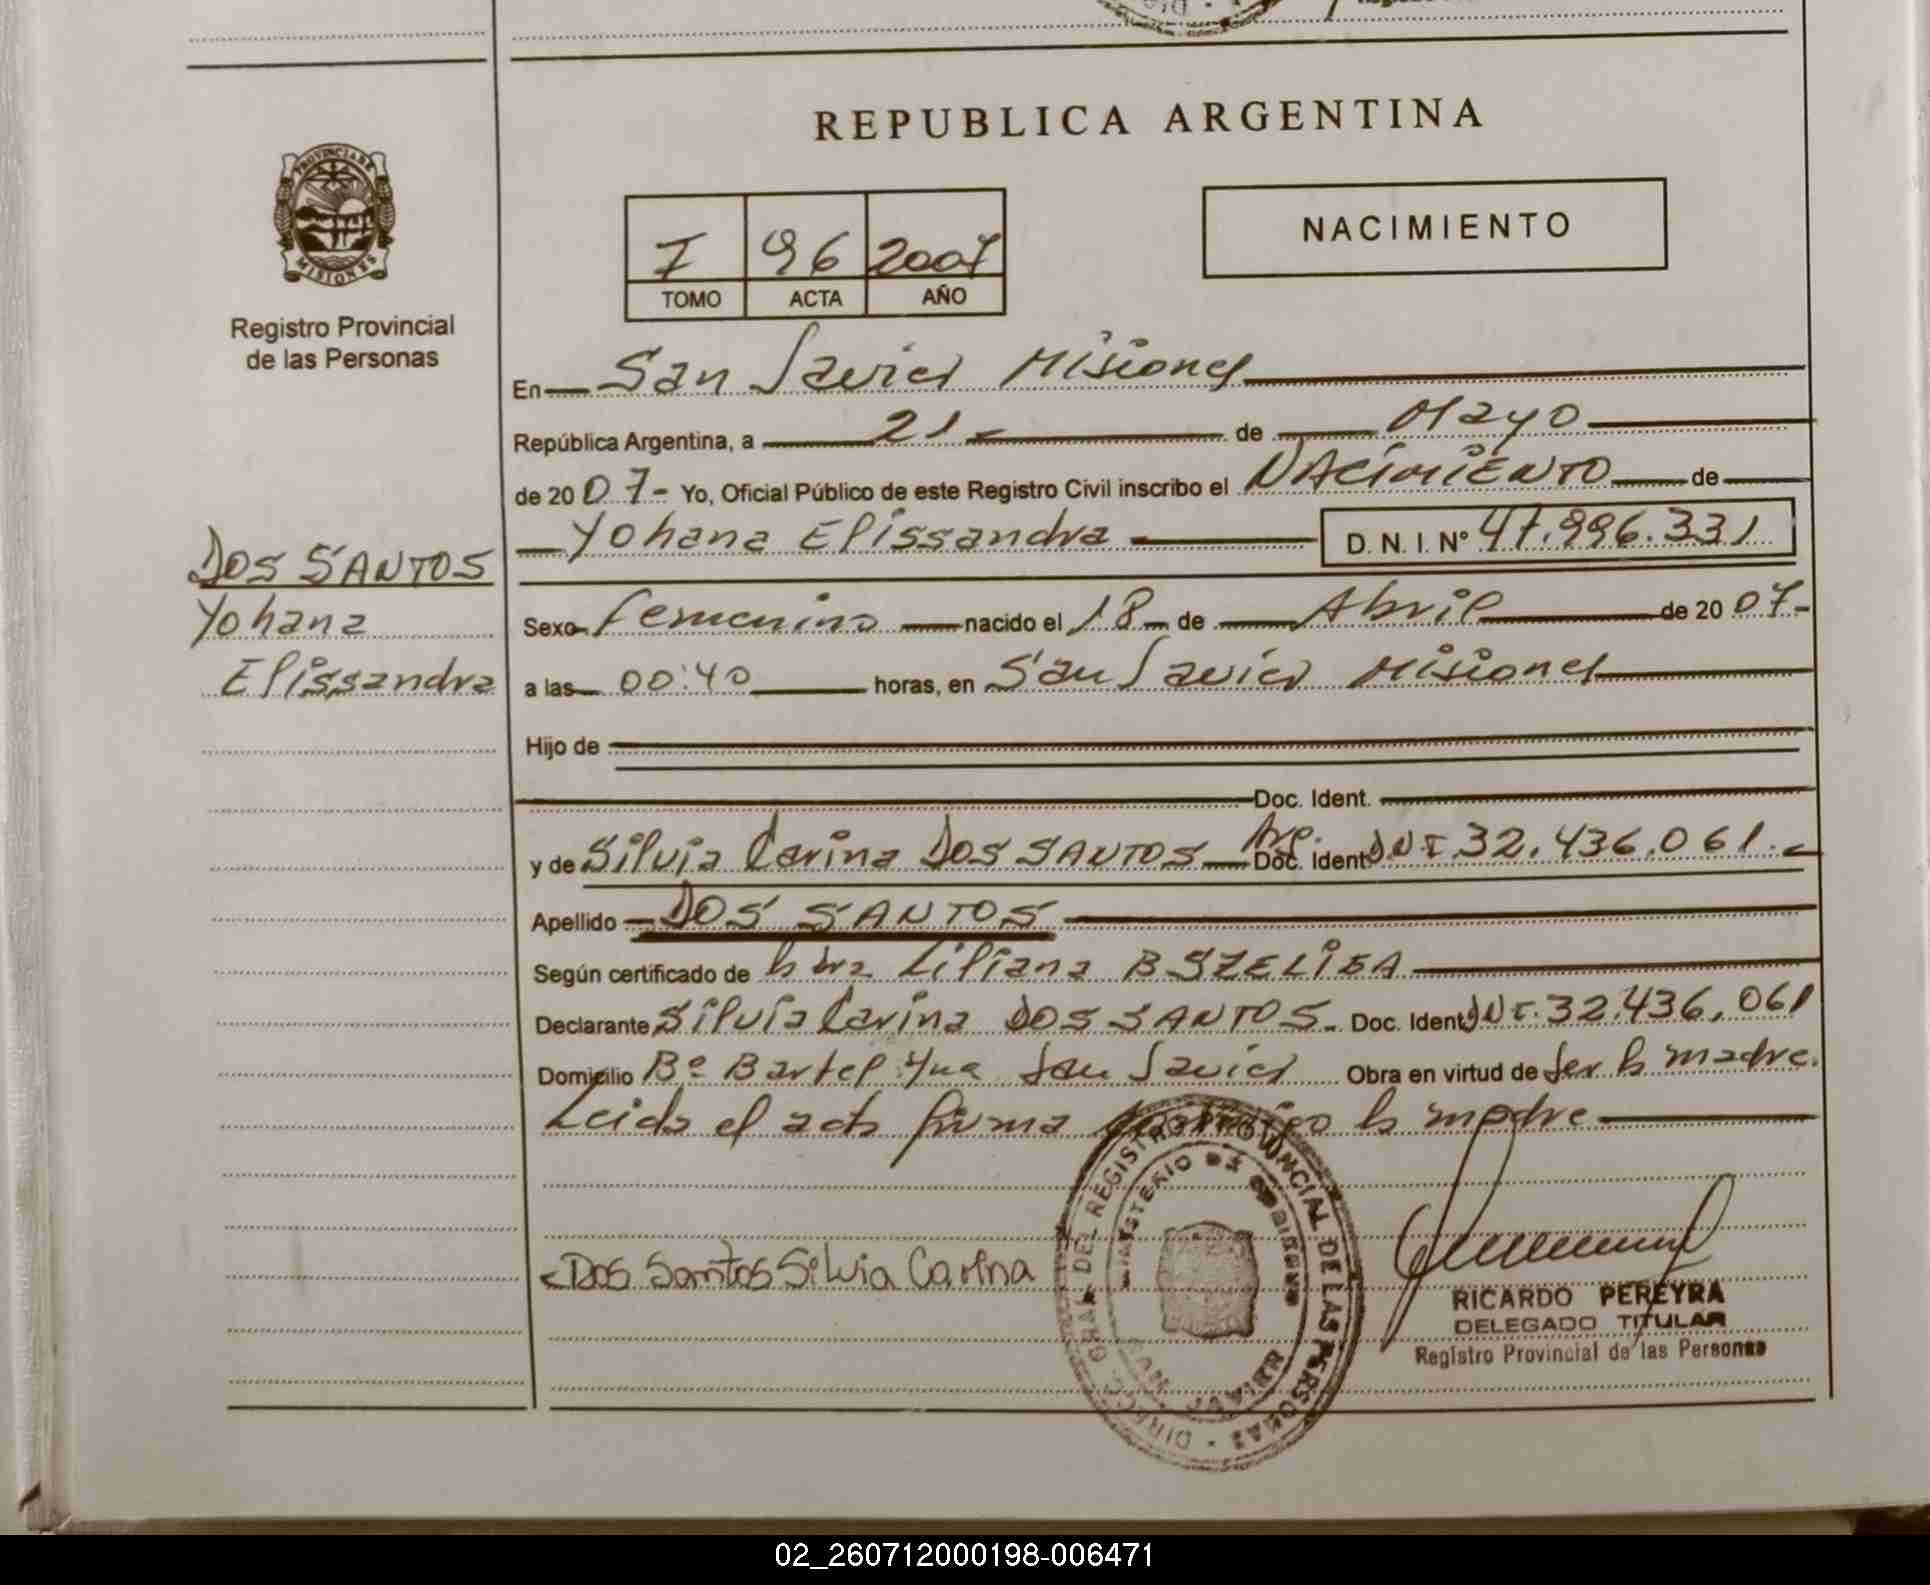 REPUBLICA ARGENTINA
PROVINCIA DE
MISIONES
Registro Provincial
de las Personas
I 96 2007
TOMO ACTA AÑO
NACIMIENTO
En San Javier Misiones
República Argentina, a 21 de Mayo
de 20 07- Yo, Oficial Público de este Registro Civil inscribo el NACIMIENTO de
Yohana Elissandra D. N. I. Nº 47.996.331
DOS SANTOS
Yohana
Elissandra
Sexo Femenino nacido el 18 de Abril de 20 07-
a las 00:40 horas, en San Javier Misiones
Hijo de
Doc. Ident.
y de Silvia Carina DOS SANTOS Arg. Doc. Ident. DNI. 32.436.061.-
Apellido DOS SANTOS
Según certificado de Liliana
Declarante Silvia Carina DOS SANTOS. Doc. Ident. DNI. 32.436.061
Domicilio Bº Bartel San Javier Obra en virtud de ser la madre.
Leida el acta firma conmigo la madre
Dos Santos Silvia Carina
DIRECC. GRAL. DEL REGISTRO PROVINCIAL DE LAS PERSONAS
MINISTERIO DE GOBIERNO
SAN JAVIER
RICARDO PEREYRA
DELEGADO TITULAR
Registro Provincial de las Personas
02_260712000198-006471